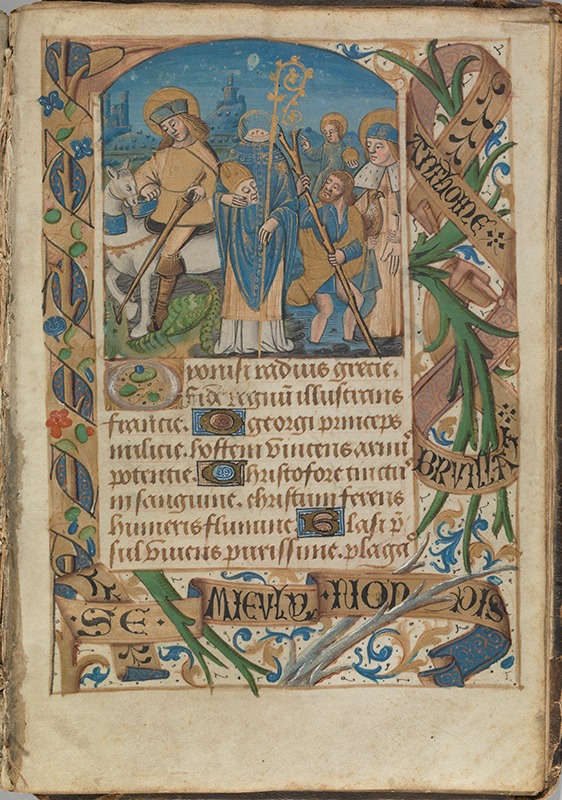 yonisi radius grecie.
fide regnū illustrans
francie. georgi princeps
milicie. hostem vincens armi
potentie. Christofore tinctū
in sanguine. christum ferens
humeris flumine Blasi p̄
sul vivens purissime. plaga
ANTHOINE
·SE· MIEVLX ·NON PIS